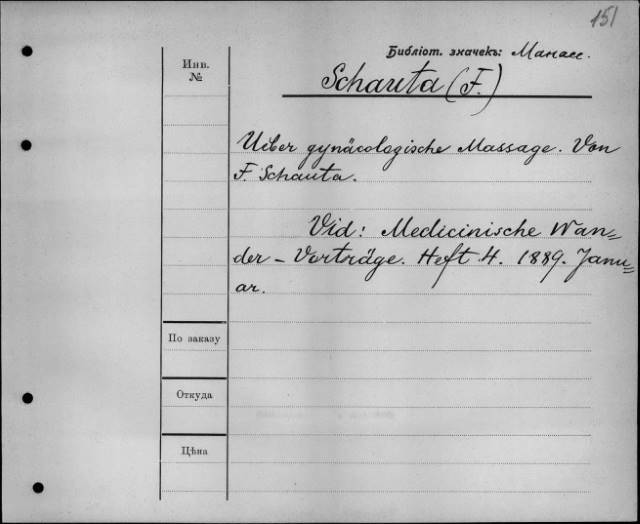 151
Библіот. значекъ: Манасс.
Инв.
№
Schauta (F.)
Ueber gynäcologische Massage. Von
F. Schauta.
Vid: Medicinische Wan=
der - Vorträge. Heft 4. 1889. Janu=
ar.
По заказу
Откуда
Цѣна